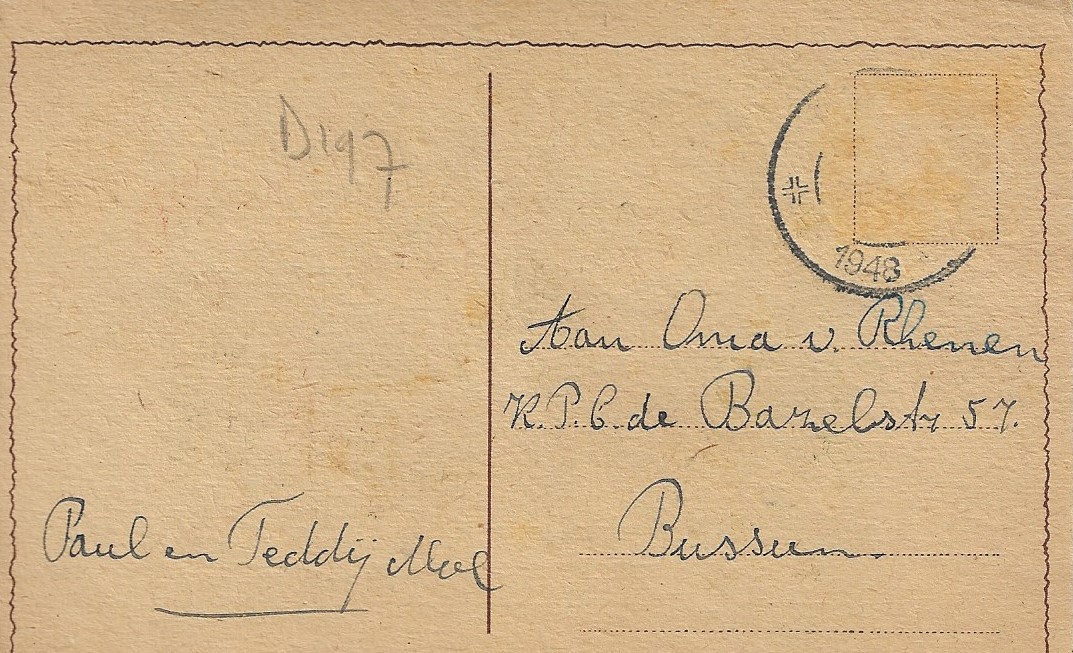 D197
1948
Aan Oma v. Rhenen
K.P.C. de Bazelstr 57.
Bussum.
Paul en Teddij Mol